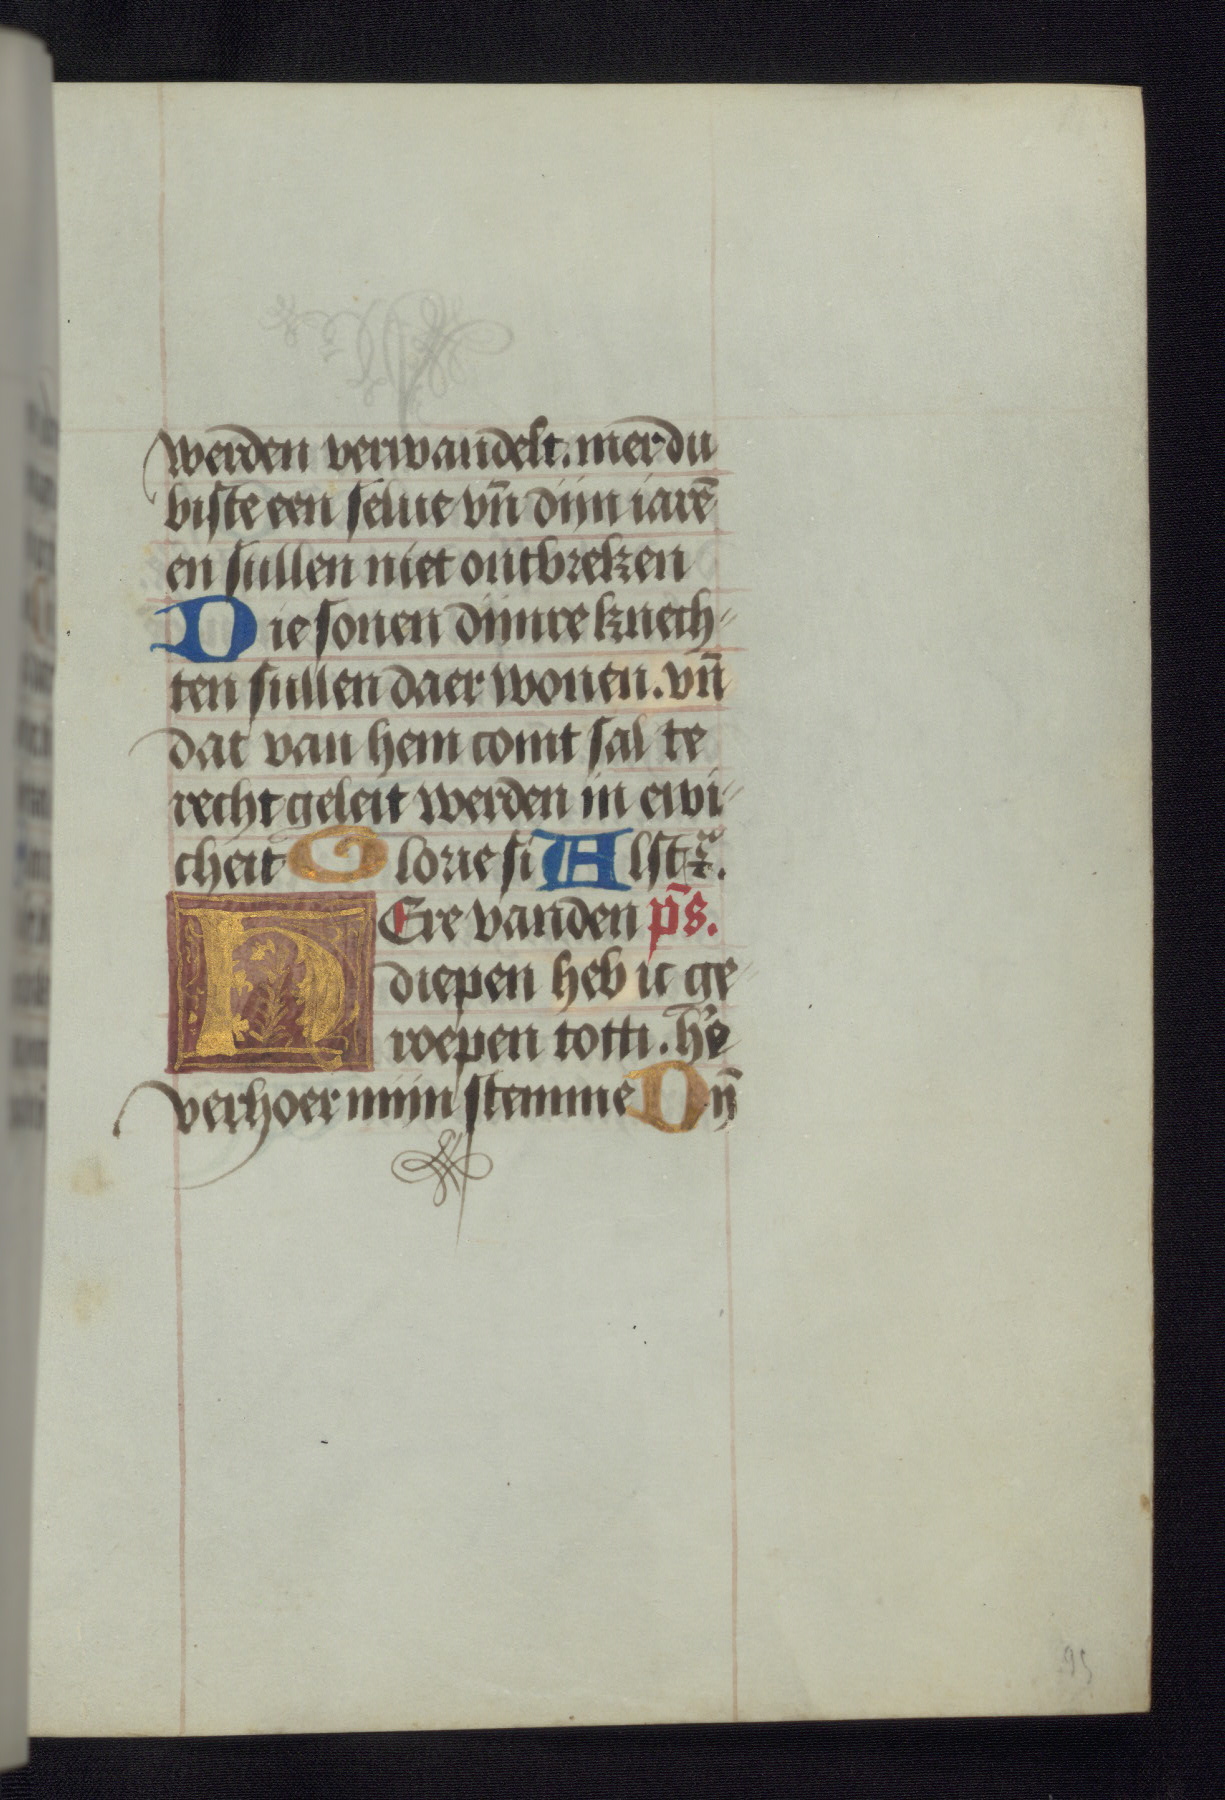 werden verwandelt. mer du
biste een selue vn̄ dijn iarē
en sullen niet ontbreken
Die sonen dijnre knech-
ten sullen daer wonen. vn̄
dat van hem comt sal te
recht geleit werden in ewi-
cheit Glorie si Alst
HEre vanden ps̄.
diepen heb ic ge-
roepen totti. h'e
verhoer mijn stemme Dÿ
95